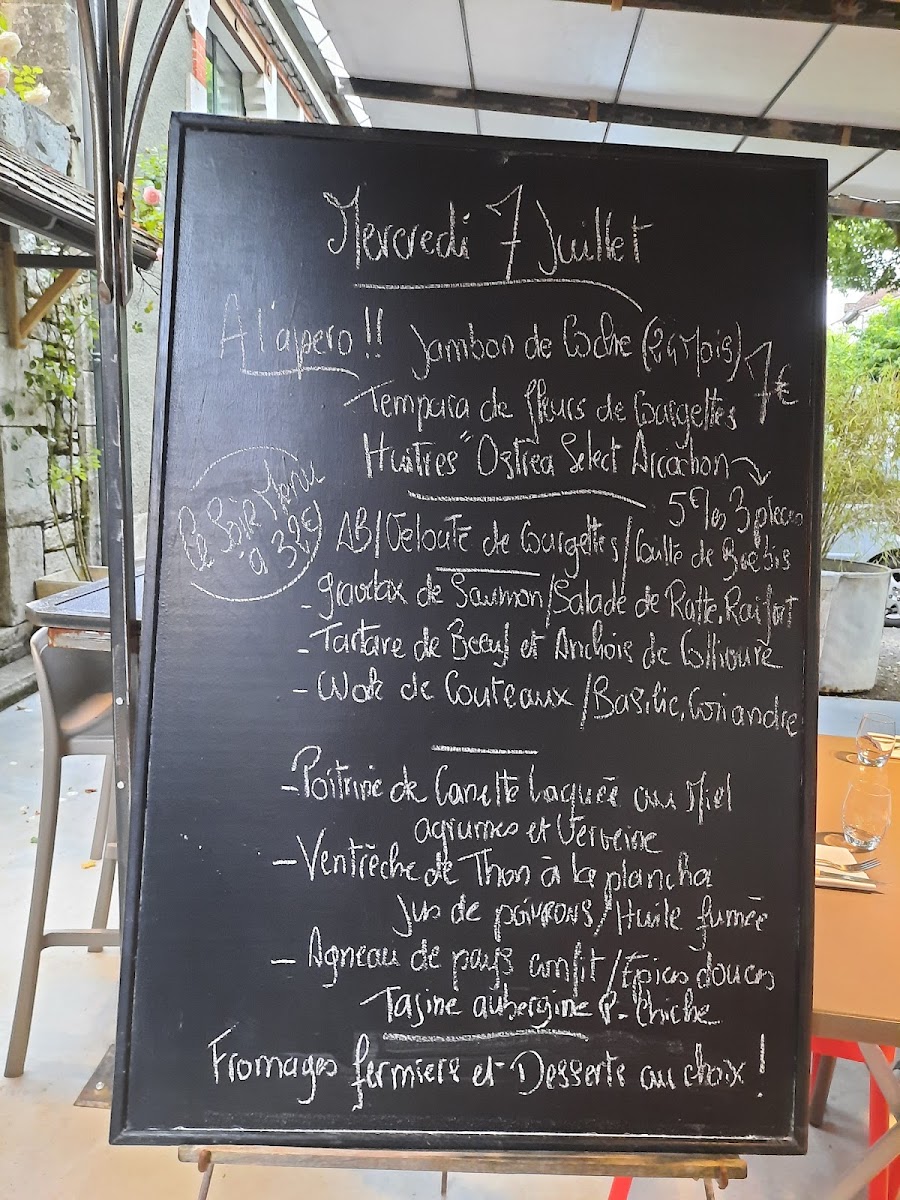 Mercredi 7 Juillet
A l'apero !!
Jambon de Coche (24 Mois) 7€
Tempura de fleurs de Courgettes
Huitres "Ostrea Select Arcachon
5€ les 3 pieces
Ce Soir Menu
à 32€
AB/Velouté de Courgettes/Caillé de Brebis
- gravlax de Saumon/Salade de Ratte, Raifort
- Tartare de Boeuf et Anchois de Collioure
- Wok de Couteaux/Basilic, Coriandre
- Poitrine de Canette Laquée au Miel
agrumes et Verveine
- Ventrèche de Thon à la plancha
Jus de poivrons/Huile fumée
- Agneau de pays confit/Epices douces
Tajine aubergine P-Chiche
Fromages fermiers et Desserts au choix !